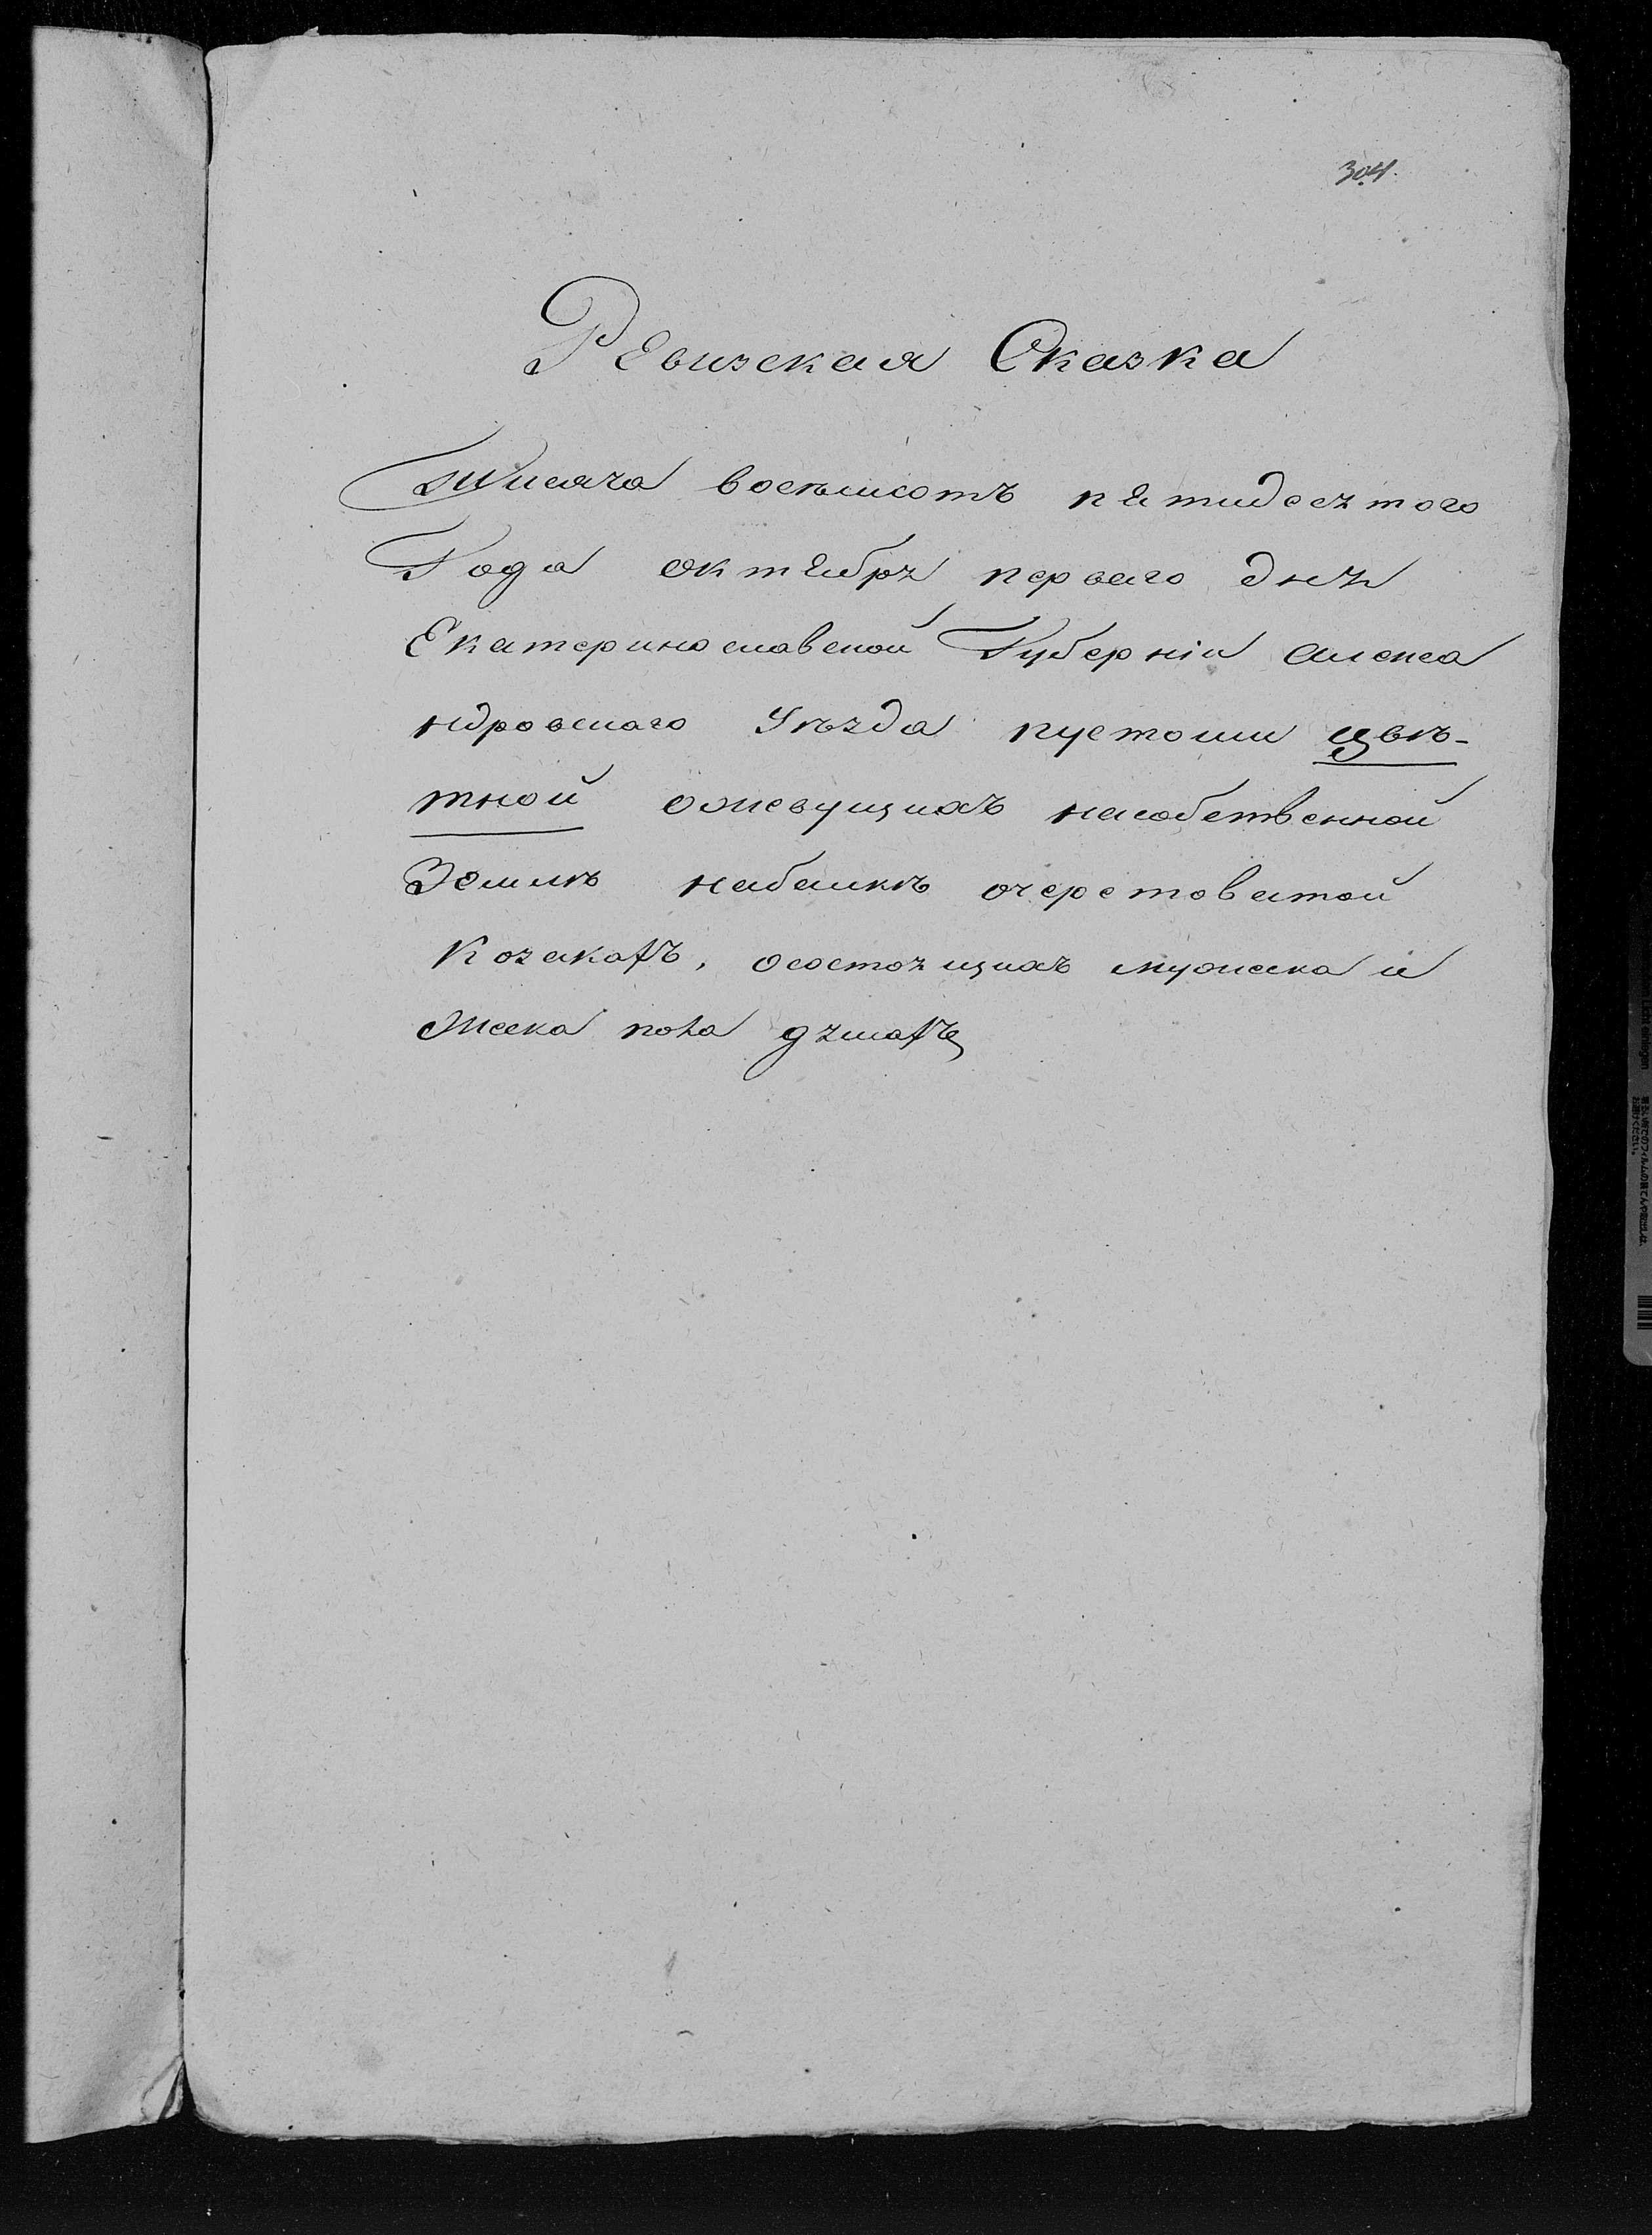 304.
Ревизская Сказка
Тысяча восемьсотъ пятидесятого
Года октября первого дня
Екатеринославской Губерніи алекса
ндровскаго Уѣзда пустоши цвѣ-
тной оживущихъ насобственной
Землѣ набалкѣ очеретоватой
Козакахъ, осостоящихъ мужеска и
Женска пола душахъ